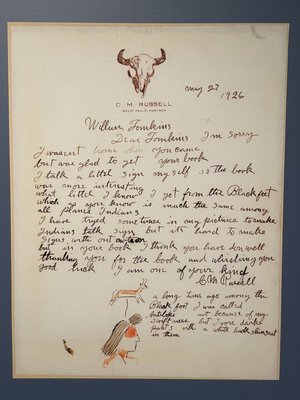 C. M. RUSSELL
GREAT FALLS, MONTANA
May 27
1926
William Tomkins
Dear Tomkins I'm sorry
I wasent home when you came
but was glad to get your book
I talk a littel sign my self so the book
was more interesting
what littel I know I got from the Blackfeet
which as you know is much the same among
all plains Indians
I have tryed some times in my pictures to make
Indians talk sign but its hard to make
signs with out motion
but in your book I think you have don well
thanking you for the book and whishing you
good luck I am one of your kind
CM Russell
a long time ago among the
Black foot I was called
Antilope not because of my
swiftness but I wore
pants with a white buck skin seat
in them